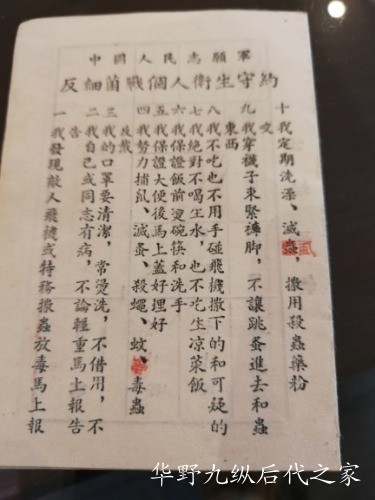 中國人民志願軍
反細菌戰個人衛生守約
一 我發現敵人飛機或特務撒蟲放毒馬上報
告
二 我自己或同志有病，不論輕重馬上報告
三 我的口罩要清潔，常燙洗，不借用，不
反戴
四 我努力捕鼠、滅蚤、殺蠅、蚊、毒蟲
五 我保證大便後馬上蓋好埋好
六 我保證飯前燙碗筷和洗手
七 我絕對不喝生水，也不吃生凉菜飯
八 我不吃也不用手碰飛機撒下的和可疑的
東西
九 我穿襪子束緊褲脚，不讓跳蚤進去和蟲
咬
十 我定期洗澡、滅虱，撒用殺蟲藥粉
华野九纵后代之家